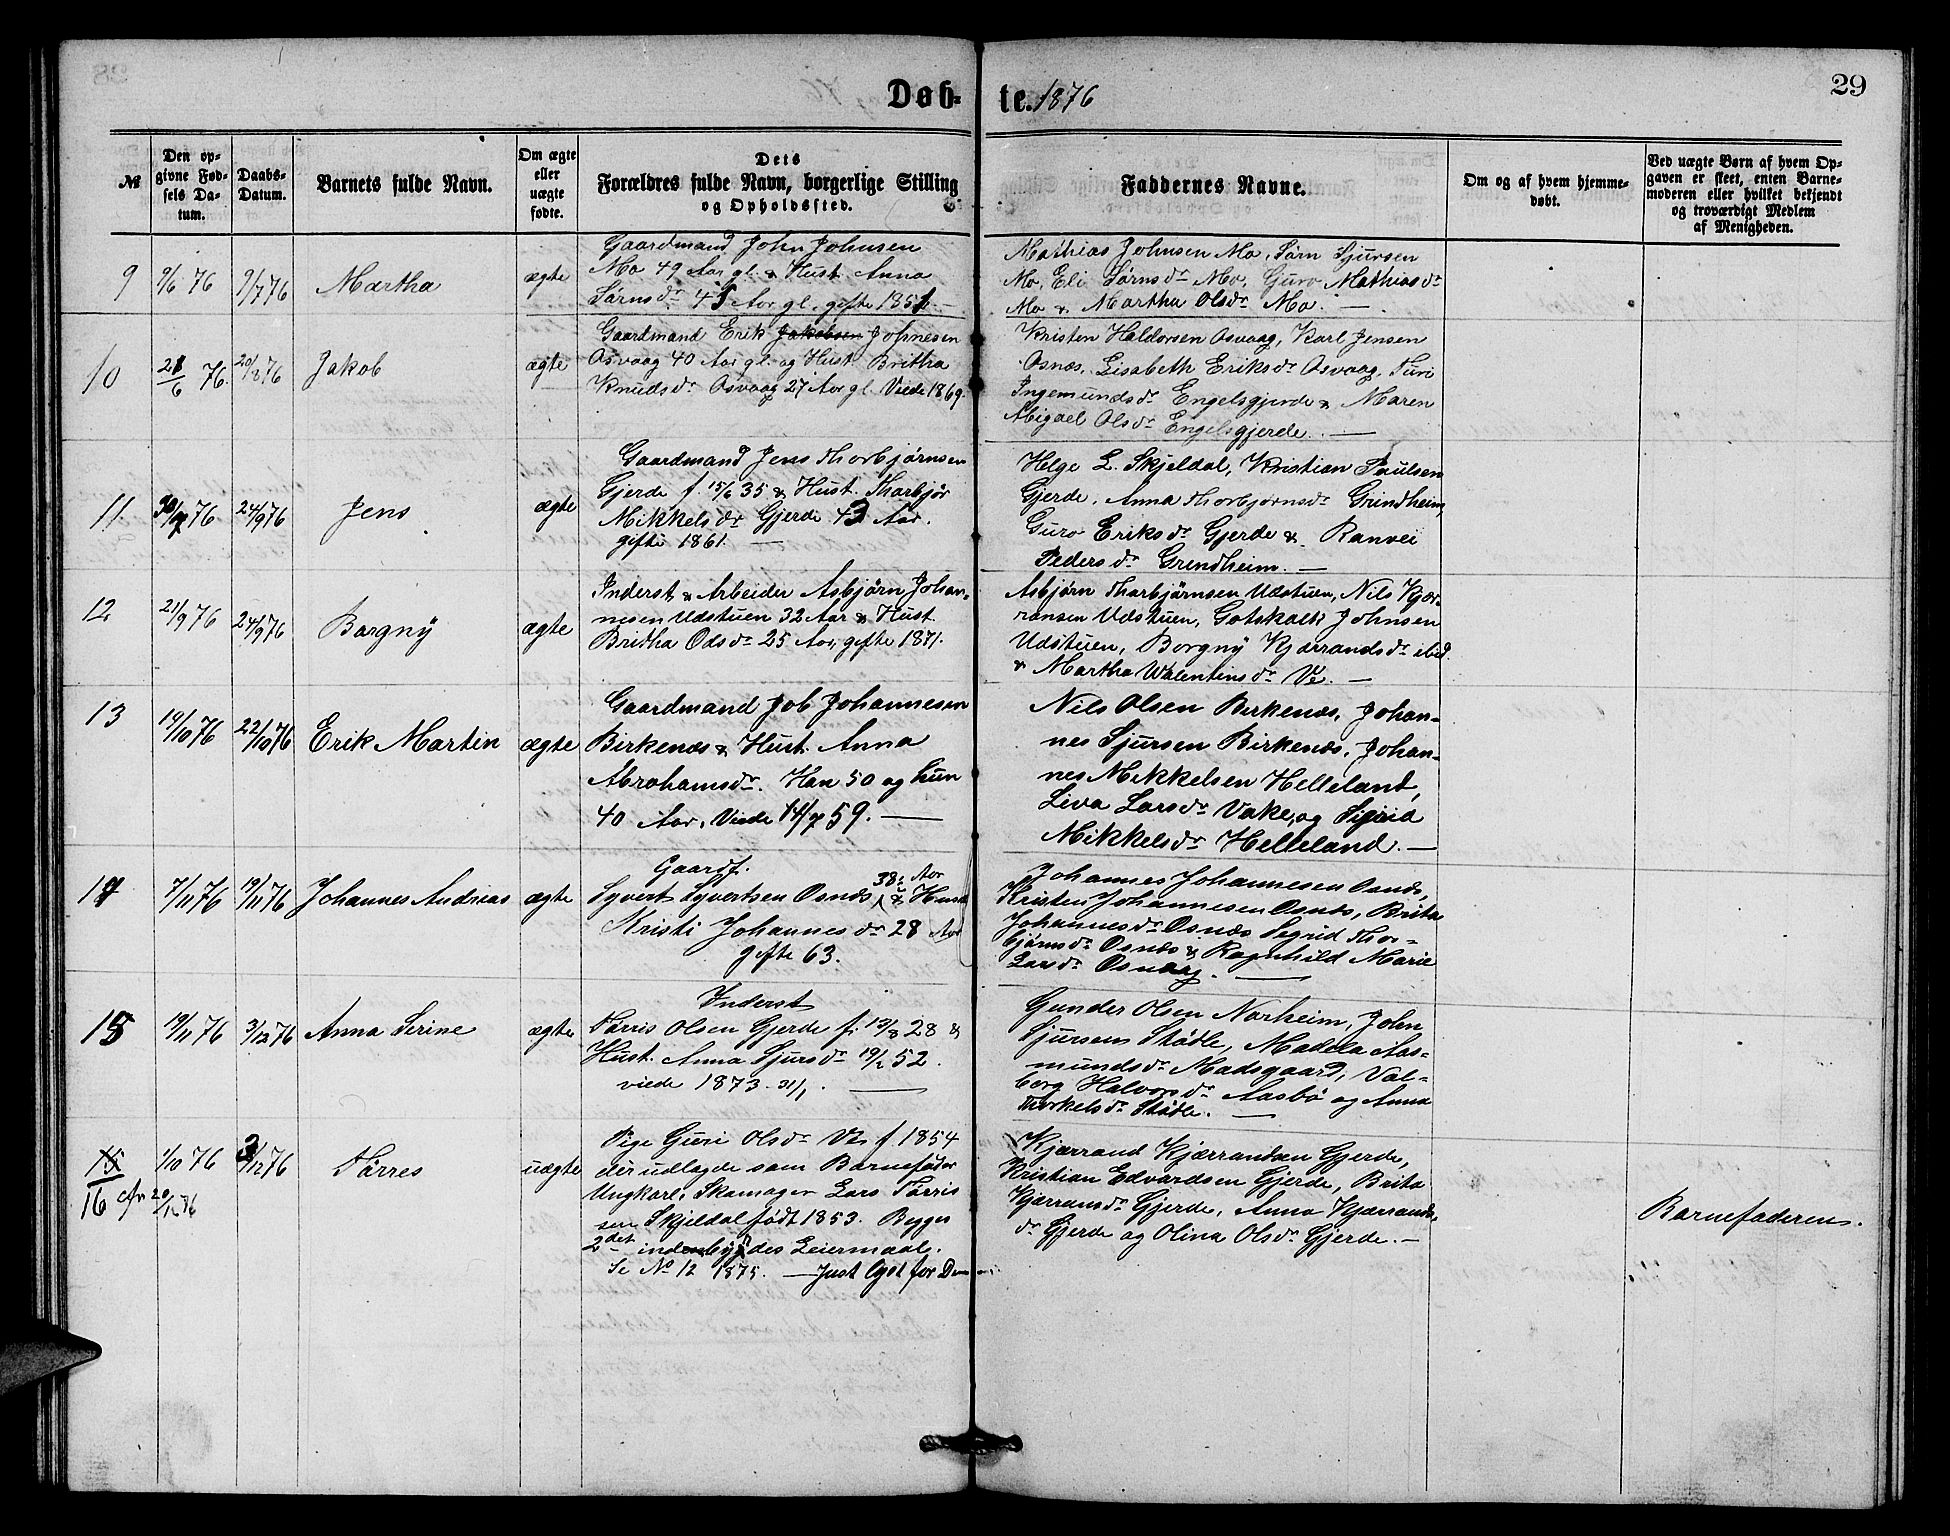 Døb-te. 1876
29
№
Den op-
givne Fød-
sels Da-
tum.
Daabs-
Datum.
Barnets fulde Navn.
Om ægte
eller
uægte
fødte.
Dets
Forældres fulde Navn, borgerlige Stilling
og Opholdssted.
Faddernes Navne.
Om og af hvem hjemme-
døbt.
Ved uægte Børn af hvem Op-
gaven er skeet, enten Barne-
moderen eller hvilket bekjendt
og troværdigt Medlem
af Menigheden.
9 9/6 76 9/7 76 Martha ægte
Gaardmand John Johnsen
Mo 49 Aar gl. & Hust. Anna
Sørnsdr 45 Aar gl. gifte 1851.
Mathias Johnsen Mo, Sørn Sjursen
Mo, Eli Sørnsdr Mo, Guro Mathiasdr
Mo & Martha Olsdr Mo. —
10 21/6 76. 76 Jakob ægte
Gaardmand Erik Jakobsen Johnesen
Osvaag 40 Aar gl. og Hust. Brittha
Knudsdr Osvaag 27 Aar gl. Viede 1869.
Kristen Haldorsen Osvaag, Karl Jensen
Osnæs, Lisabeth Eriksdr Osvaag, Turi
Ingemundsdr Engelsgjerde & Maren
Abigael Olsdr Engelsgjerde. —
11. 76 24/9 76 Jens ægte
Gaardmand Jens Thorbjørnsen
Gjerde f. 15/6 35 & Hust. Tharbjør
Mikkelsdr Gjerde 43 Aar.
gifte 1861. —
Helge L. Skjeldal, Kristian Paulsen
Gjerde, Anna Thorbjørnsdr Grindheim,
Guro Eriksdr Gjerde & Ranvei
Pedersdr Grendheim. —
12 21/9 76 24/9 76 Borgny ægte
Inderst & Arbeider Asbjørn Johan-
nesen Udstuen 32 Aar & Hust.
Bridha Odsdr 25 Aar, gifte 1871.
Asbjørn Tharbjørnsen Udstuen, Nils Kjær-
ransen Udstuen, Gotskalk Johnsen
Udstuen, Borgny Kjærrandsdr ibid.
& Martha Walentinsdr Ve. —
13 19/10 76 22/10 76 Erik Martin ægte
Gaardmand Job Johannesen
Birkenæs & Hust. Anna
Abrahamsdr. Han 50 og hun
40 Aar. Viede 14/7 59. —
Nils Olsen Birkenæs, Johan-
nes Sjursen Birkenæs, Johan-
nes Mikkelsen Helleland,
Liva Larsdr Vake, og Sigrid
Mikkelsdr Helleland. —
14 7/11 76 19/11 76 Johannes Andreas ægte
Gaardf.
Syvert Syvertsen Osnæs 38 Aar & Hust
Kristi Johannesdr 28 Aar
gifte 63.
Johannes Johannesen Osnæs,
Kristen Johannesen Osnæs, Brita
Johannesdr Osnæs Segrid Thor-
bjørnsdr Osnæs & Ragnhild Marie
Larsdr Osvaag. —
15 19/11 76 3/12 76 Anna Serine ægte
Inderst
Tørris Olsen Gjerde f. 13/8 28 &
Hust. Anna Sjursdr 19/2 52.
viede 1873 21/1. —
Gunder Olsen Norheim, John
Sjursen Stødle, Madela Aas-
mundsdr Madsgaard, Val-
borg Halvorsdr Aasbø og Anna
Thorkelsdr Stødle. —
15
16 1/10 76 3/12 76 Tørres uægte
Pige Guri Olsdr Ve f. 1854
der udlagde som Barnefader
Ungkarl, Skomager Lars Tørris
sen Skjeldal født 1853. Begges
2det indbyrdes Leiermaal.
Se No 12 1875. —
Kjærrand Kjærrandsen Gjerde,
Kristian Edvardsen Gjerde, Brita
Kjærransdr Gjerde, Anna Kjærrands-
dr Gjerde og Olina Olsdr Gjerde. —
Barnefaderen.